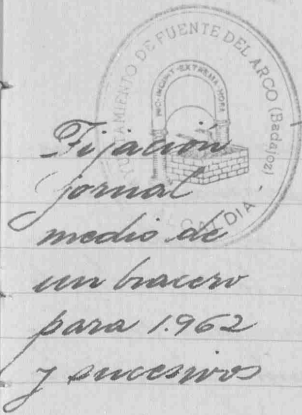 AYUNTAMIENTO DE FUENTE DEL ARCO (Badajoz)
ALCALDIA
Fijación
jornal
medio de
un bracero
para 1.962
y sucesivos